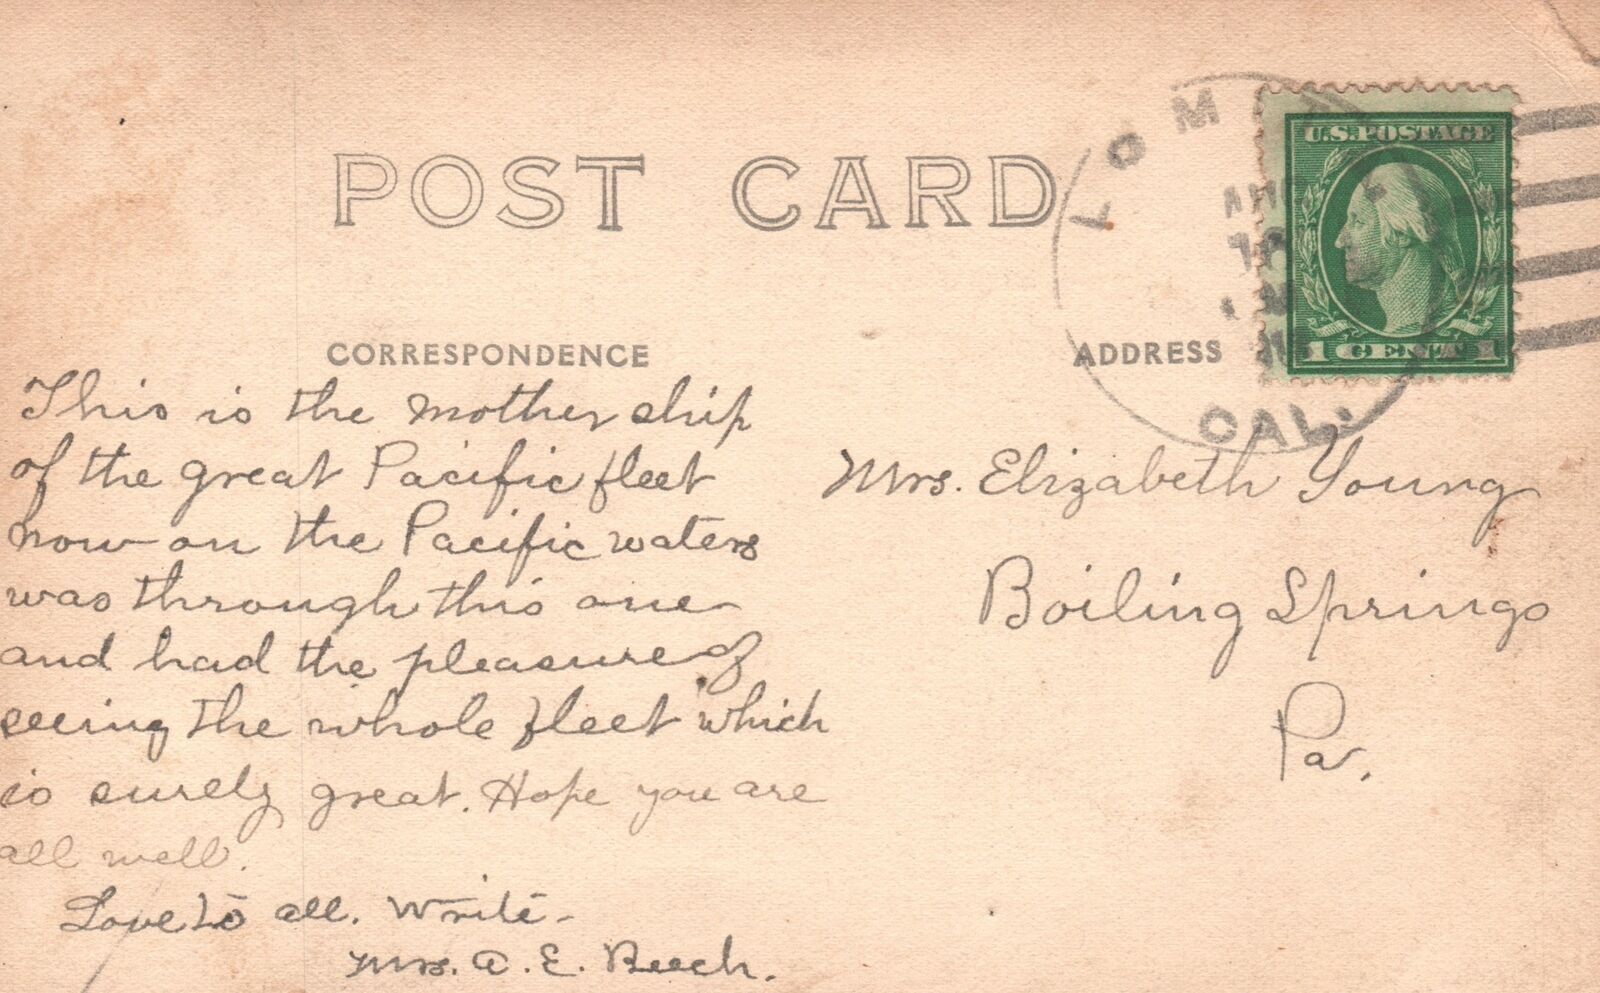 POST CARD
LOMITA
CAL.
U.S. POSTAGE
1 CENT 1
CORRESPONDENCE
ADDRESS
This is the mother ship
of the great Pacific fleet
now on the Pacific waters
was through this one
and had the pleasure of
seeing the whole fleet which
is surely great. Hope you are
all well.
Love to all. Write -
Mrs. A. E. Beech.
Mrs. Elizabeth Young
Boiling Springs
Pa.